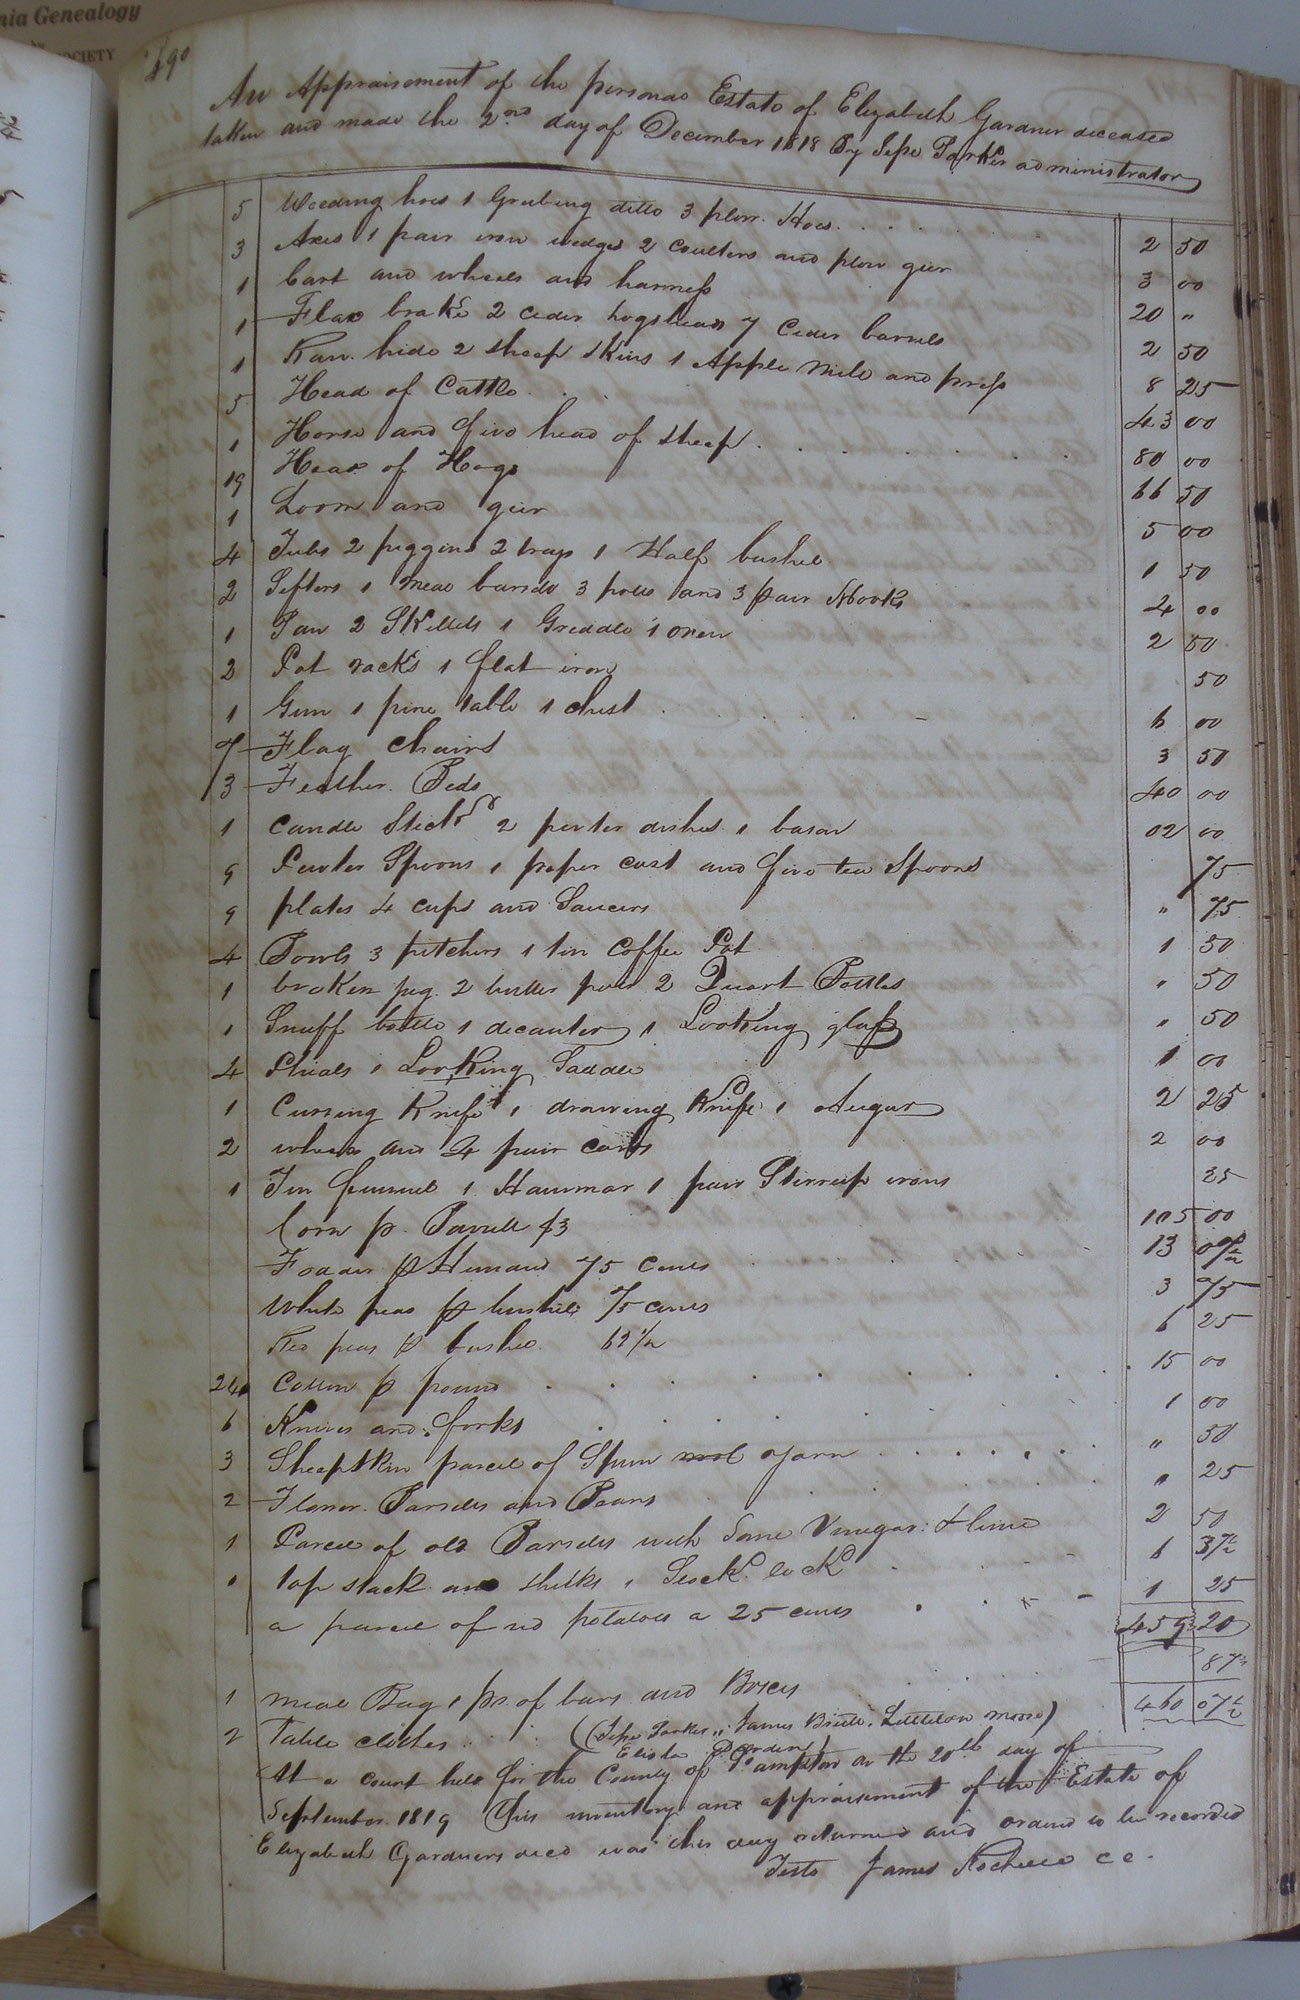 nia Genealogy
OCIETY
490
An Appraisement of the personal Estate of Elizabeth Gardner deceased
taken and made the 2nd day of December 1818 By Jesse Parker administrator
5 Weeding hoes 1 Grubing ditto 3 plow Hoes 2 50
3 Axes 1 pair iron wedges 2 coulters and plow geer 3 00
1 Cart and wheels and harness 20 "
1 Flax brake 2 ceder hogsheads 7 Ceder barrels 2 50
1 Raw hide 2 sheep skins 1 Apple mill and press 8 25
5 Head of Cattle 43 00
1 Horse and five head of sheep 80 00
19 Head of Hogs 66 50
1 Loom and geer 5 00
4 Tubs 2 piggins 2 trays 1 Half bushel 1 50
2 Sifters 1 meal barrel 3 potts and 3 pair Hooks 4 00
1 Pan 2 Skillets 1 Griddle 1 oven 2 50
2 Pot racks 1 flat iron 50
1 Gun 1 pine table 1 chest 6 00
7 Flag chairs 3 50
3 Feather Beds 40 00
1 Candle Stick 2 pewter dishes 1 bason 02 00
9 Pewter Spoons 1 peper cast and five tea Spoons 75
9 plates 4 cups and Saucers " 75
4 Bowls 3 pitchers 1 tin Coffee Pot 1 50
1 broken jug 2 butter pots 2 Quart Bottles " 50
1 Snuff bottle 1 decanter 1 Looking glass " 50
4 Phials 1 Looking Saddle 1 00
1 Curring Knife 1 drawing Knife 1 Augur 2 25
2 wheels and 4 pair cards 2 00
1 Tin funnel 1 Hammar 1 pair Stirrup irons 25
Corn p. Barrell $3 105 00
Fodder p Hundred 75 Cents 13
White peas p bushel 75 cents 3 75
Red peas p bushel 62 1/2 6 25
240 Cotton p pound 15 00
6 Knives and forks 1 00
3 Sheepskin parcel of Spun yarn " 50
2 Flower Barrells and Beans " 25
1 Parcel of old Barrells with Some Vinegar & lime 2 50
1 top stack and shucks 1 Stock lock 6 37 1/2
a parcel of potatoes a 25 cents 1 25
459 20
87 1/2
1 meal Bag 1 pr. of bars and Boxes 460 07 1/2
2 Table clothes (Jesse Parker, James Britt, Littleton Moore)
Elisha Darden)
At a court held for the County of Southampton on the 20th day of
September 1819 This inventory and appraisement of the Estate of
Elizabeth Gardners decd was this day returned and ordered to be recorded
Teste James Rochelle C C.